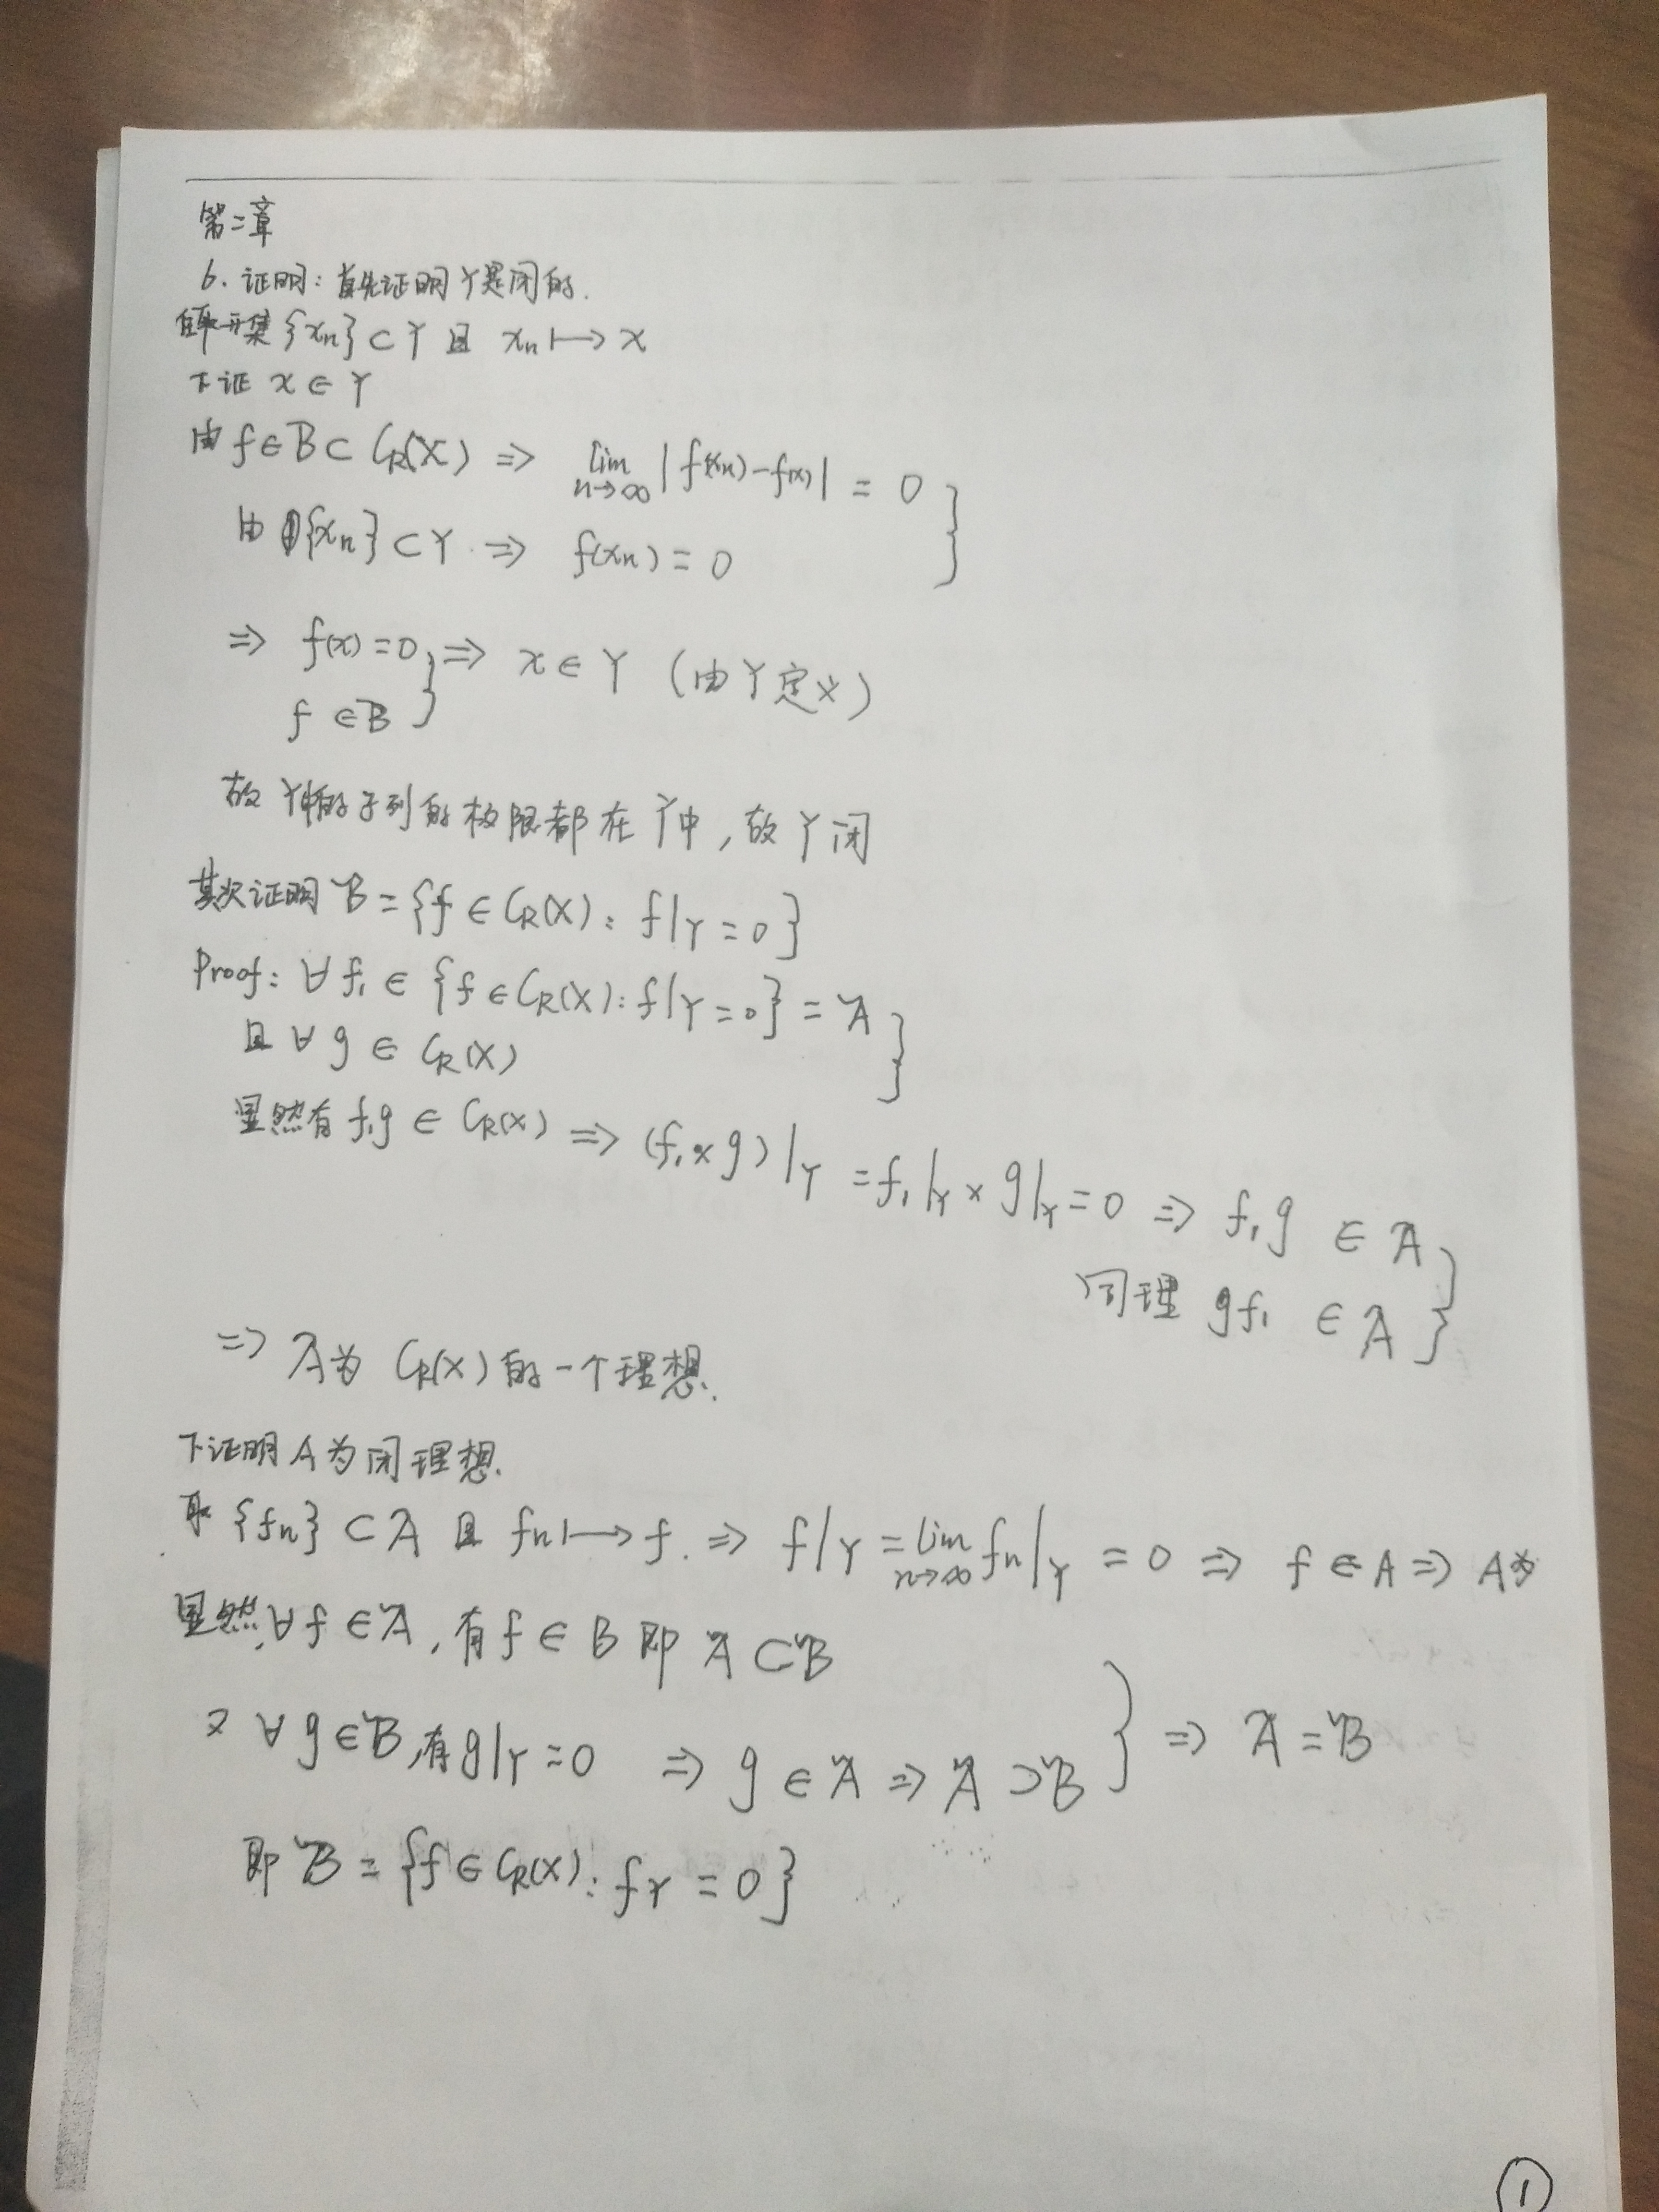 第二章
6. 证明: 首先证明 Y是闭的.
{xₙ} ⊂ Y 且 xₙ ↦ x
下证 x ∈ Y
由 f ∈ B ⊂ C_R(X) ⇒ lim_{n→∞} |f(xₙ) - f(x)| = 0 }
由 {xₙ} ⊂ Y ⇒ f(xₙ) = 0
⇒ f(x) = 0 } ⇒ x ∈ Y (由 Y 定义)
f ∈ B
故 Y中的子列的极限都在 Y中, 故 Y 闭
其次证明 B = {f ∈ C_R(X): f|_Y = 0}
Proof: ∀ f₁ ∈ {f ∈ C_R(X): f|_Y = 0} = A }
且 ∀ g ∈ C_R(X)
显然有 f₁g ∈ C_R(X) ⇒ (f₁×g)|_Y = f₁|_Y × g|_Y = 0 ⇒ f₁g ∈ A }
同理 gf₁ ∈ A
⇒ A为 C_R(X) 的一个理想.
下证明 A 为闭理想.
取 {fₙ} ⊂ A 且 fₙ ↦ f. ⇒ f|_Y = lim_{n→∞} fₙ|_Y = 0 ⇒ f ∈ A ⇒ A为
显然, ∀ f ∈ A, 有 f ∈ B 即 A ⊂ B
又 ∀ g ∈ B, 有 g|_Y = 0 ⇒ g ∈ A ⇒ A ⊃ B } ⇒ A = B
即 B = {f ∈ C_R(X): f_Y = 0}
①